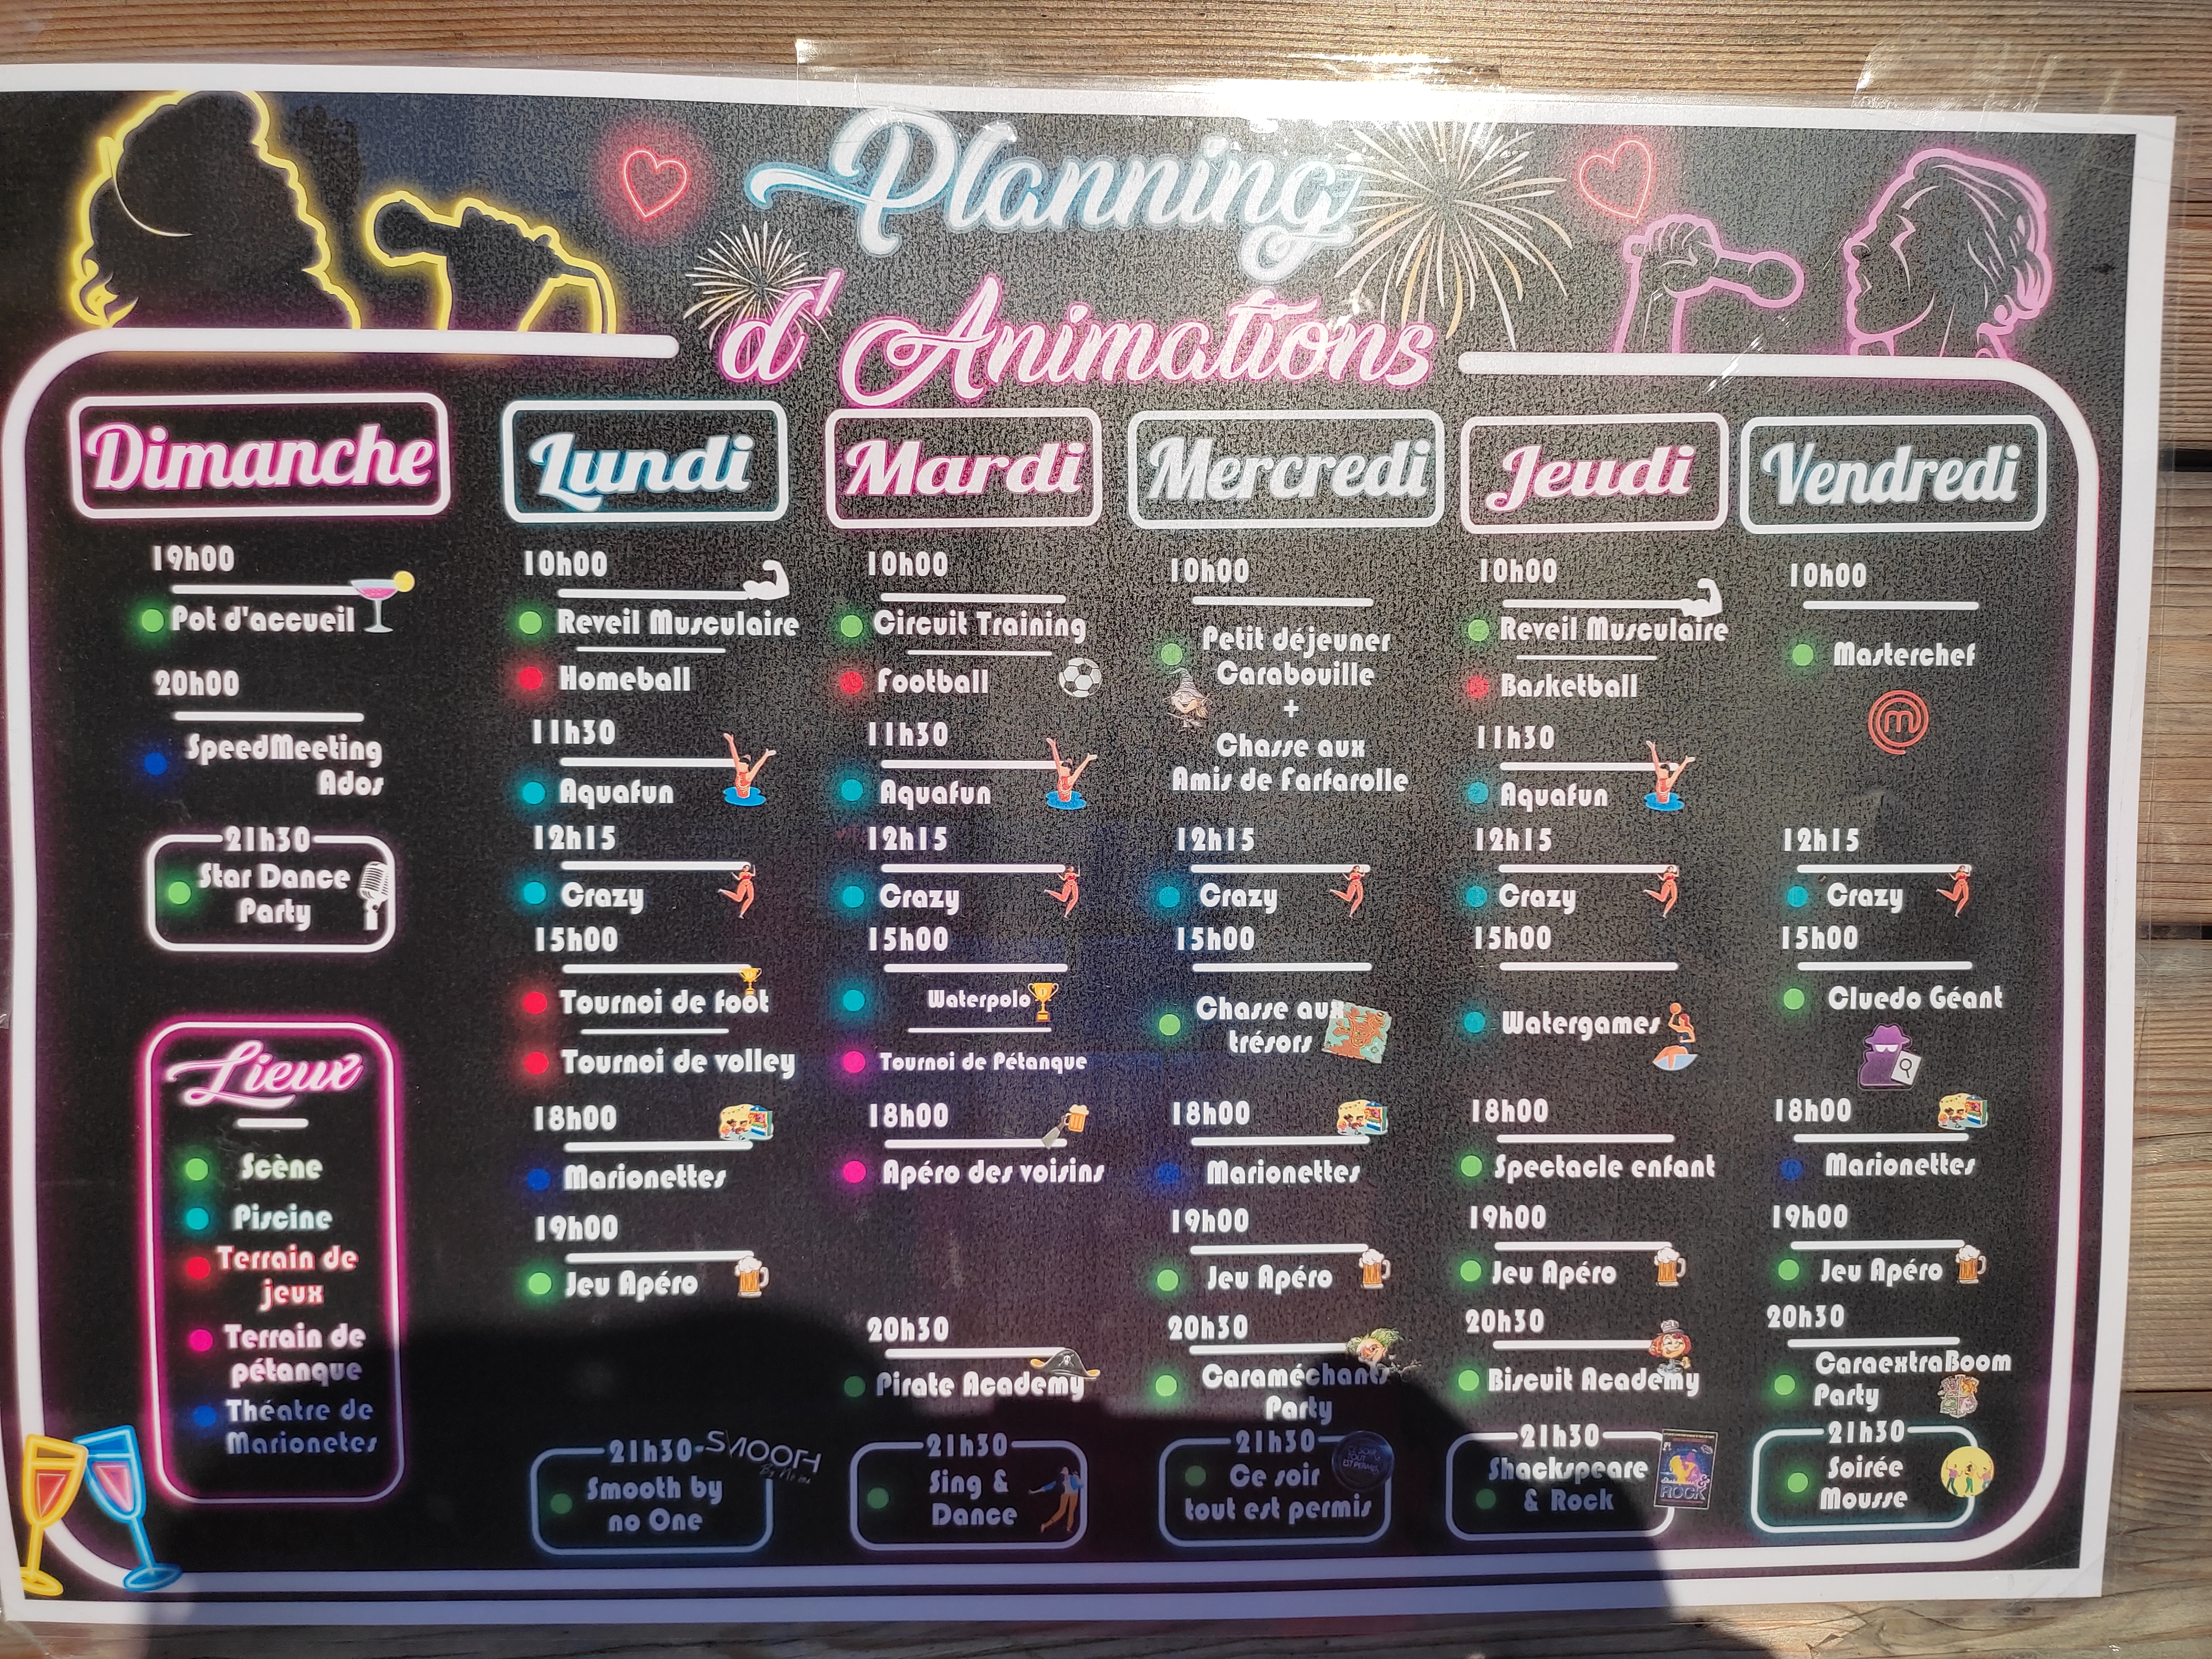 Planning
d'Animations
Dimanche
19h00
Pot d'accueil
20h00
SpeedMeeting
Ados
21h30
Star Dance
Party
Lieux
Scène
Piscine
Terrain de
jeux
Terrain de
pétanque
Théatre de
Marionetes
Lundi
10h00
Reveil Musculaire
Homeball
11h30
Aquafun
12h15
Crazy
15h00
Tournoi de foot
Tournoi de volley
18h00
Marionettes
19h00
Jeu Apéro
21h30
SMOOTH
Smooth by
no One
Mardi
10h00
Circuit Training
Football
11h30
Aquafun
12h15
Crazy
15h00
Waterpolo
Tournoi de Pétanque
18h00
Apéro des voisins
20h30
Pirate Academy
21h30
Sing &
Dance
Mercredi
10h00
Petit déjeuner
Carabouille
+
Chasse aux
Amis de Farfarolle
12h15
Crazy
15h00
Chasse aux
trésors
18h00
Marionettes
19h00
Jeu Apéro
20h30
Caraméchants
Party
21h30
Ce soir
tout est permis
Jeudi
10h00
Reveil Musculaire
Basketball
11h30
Aquafun
12h15
Crazy
15h00
Watergames
18h00
Spectacle enfant
19h00
Jeu Apéro
20h30
Biscuit Academy
21h30
Shackspeare
& Rock
ROCK
Vendredi
10h00
Masterchef
m
12h15
Crazy
15h00
Cluedo Géant
18h00
Marionettes
19h00
Jeu Apéro
20h30
CaraextraBoom
Party
21h30
Soirée
Mousse